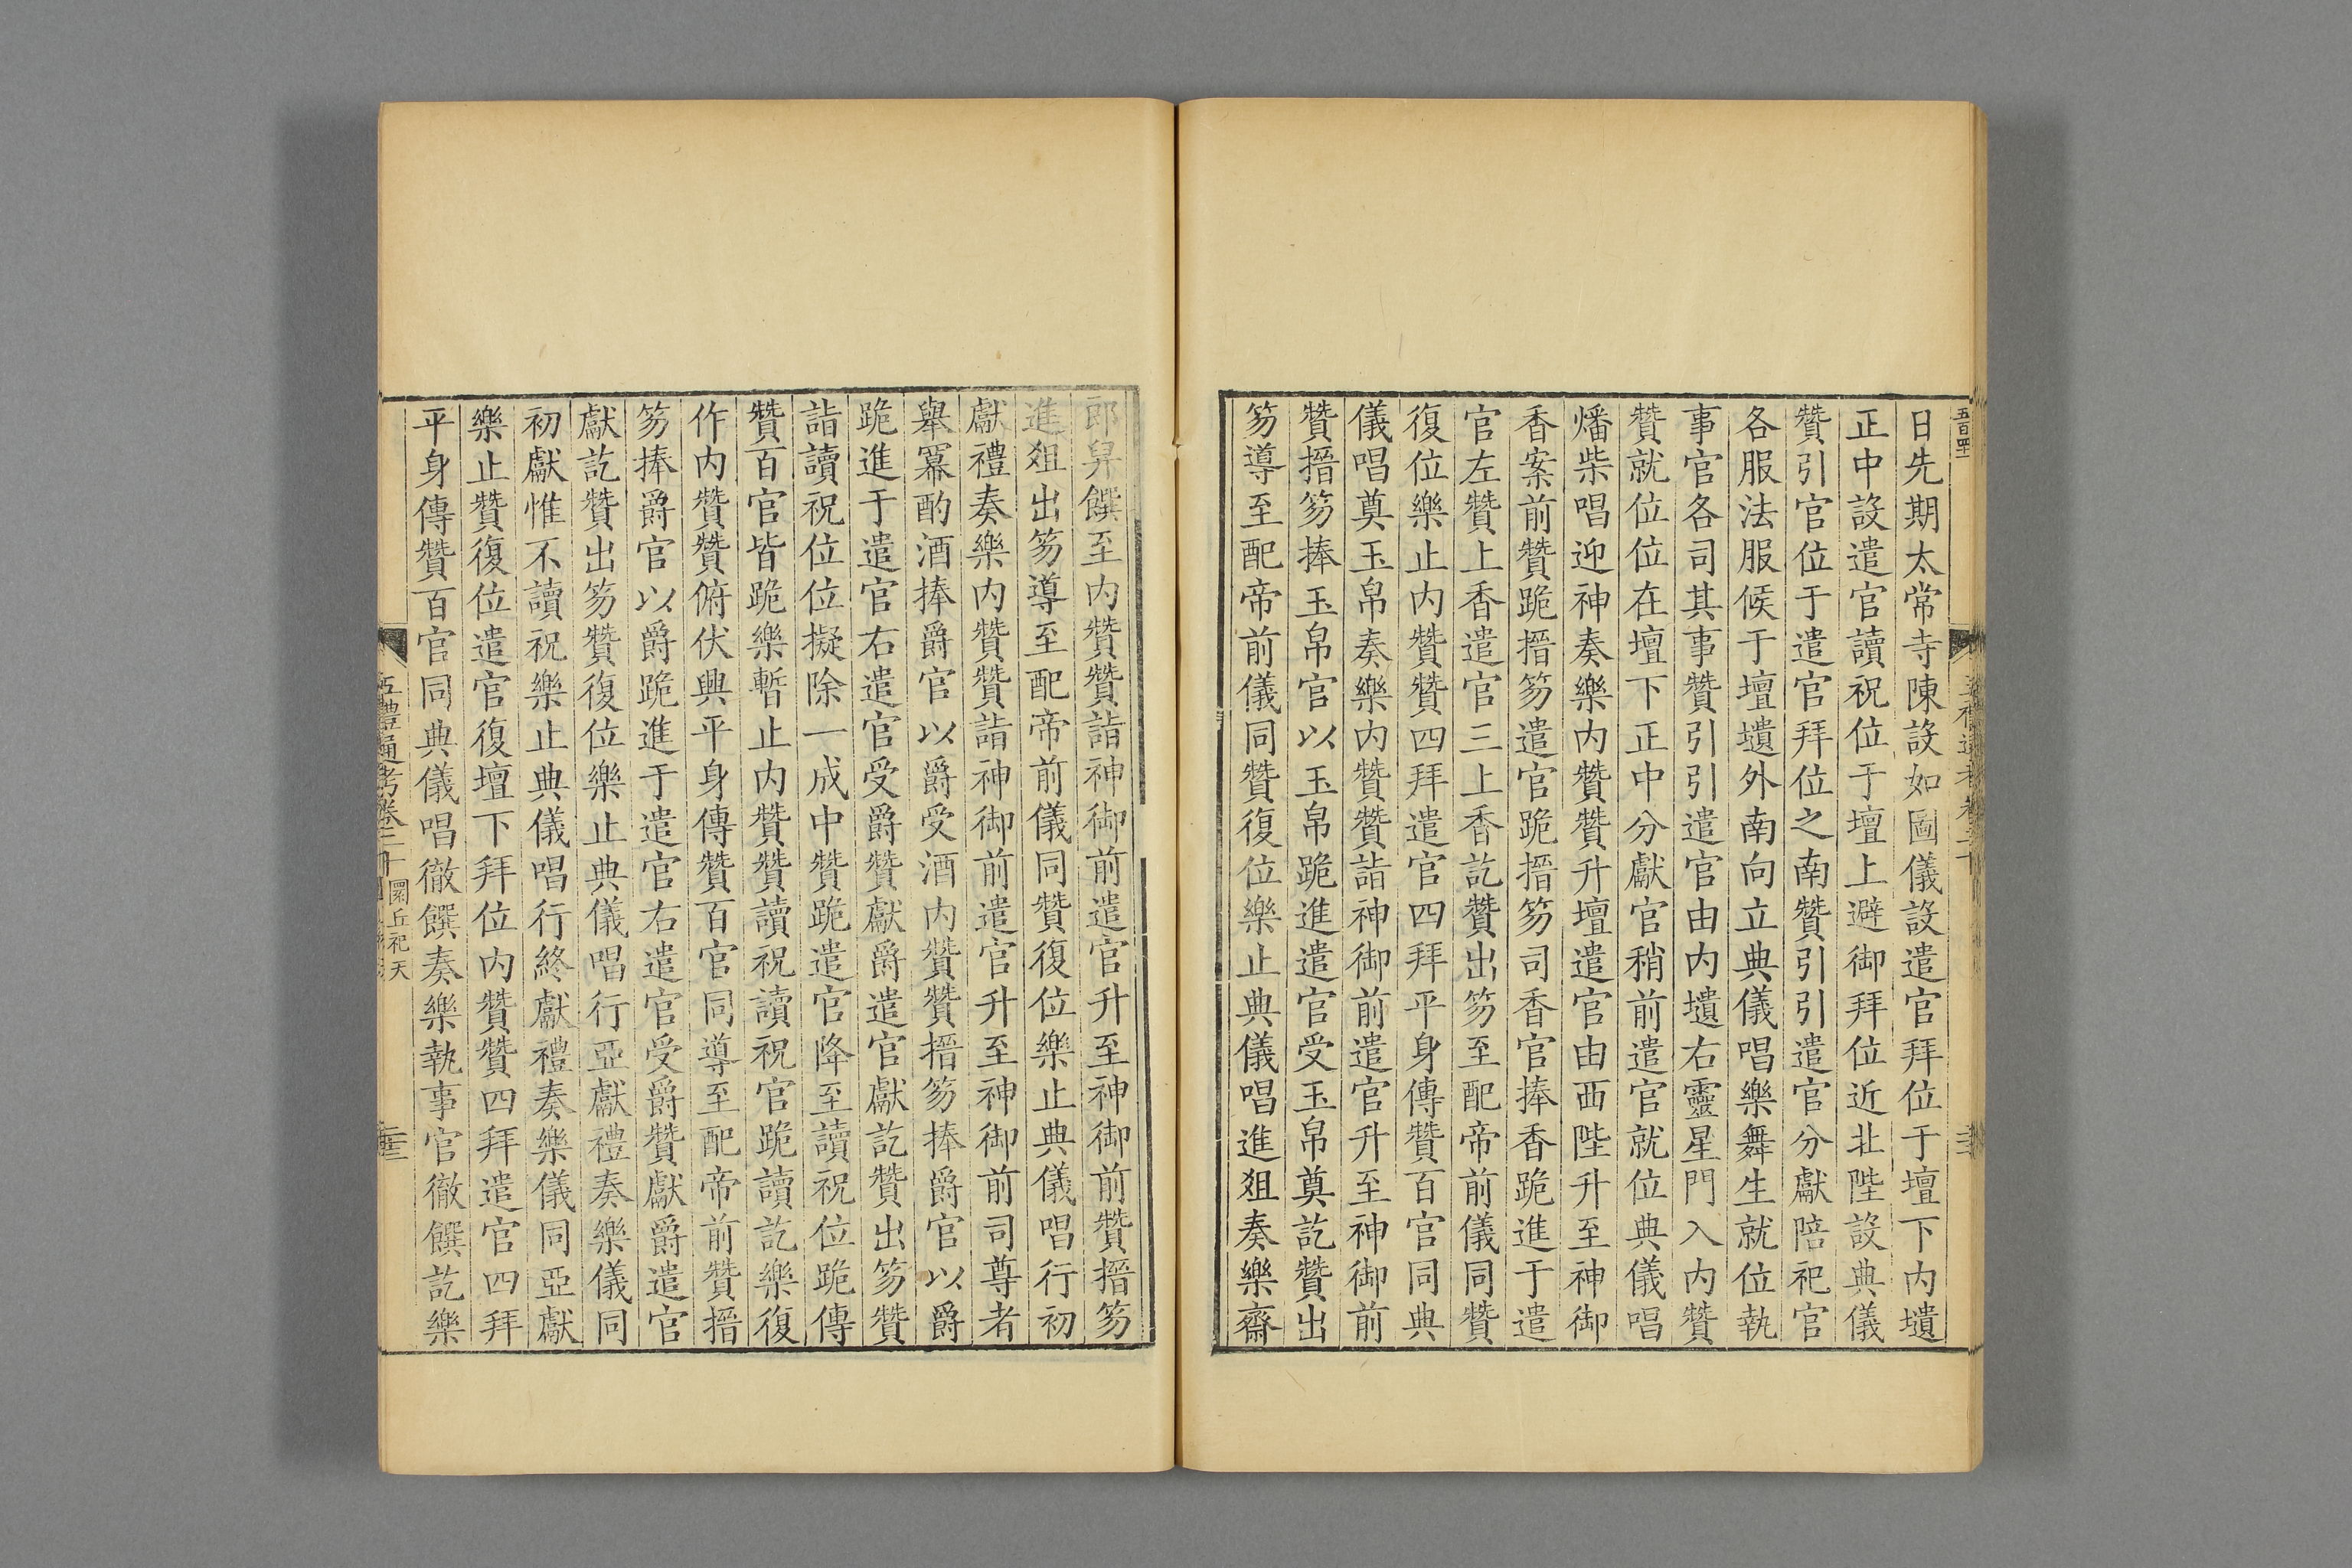 日先期太常寺陳設如圖儀設遣官拜位于壇下内壝
正中設遣官讀祝位于壇上避御拜位近北陛設典儀
贊引官位于遣官拜位之南贊引引遣官分獻陪祀官
各服法服候于壇壝外南向立典儀唱樂舞生就位執
事官各司其事贊引引遣官由内壝右靈星門入内贊
贊就位位在壇下正中分獻官稍前遣官就位典儀唱
燔柴唱迎神奏樂内贊贊升壇遣官由西陛升至神御
香案前贊跪搢笏遣官跪搢笏司香官捧香跪進于遣
官左贊上香遣官三上香訖贊出笏至配帝前儀同贊
復位樂止内贊贊四拜遣官四拜平身傳贊百官同典
儀唱奠玉帛奏樂内贊贊詣神御前遣官升至神御前
贊搢笏捧玉帛官以玉帛跪進遣官受玉帛奠訖贊出
笏導至配帝前儀同贊復位樂止典儀唱進俎奏樂齋
郎舁饌至内贊贊詣神御前遣官升至神御前贊搢笏
進俎出笏導至配帝前儀同贊復位樂止典儀唱行初
獻禮奏樂内贊贊詣神御前遣官升至神御前司尊者
舉冪酌酒捧爵官以爵受酒内贊贊搢笏捧爵官以爵
跪進于遣官右遣官受爵贊獻爵遣官獻訖贊出笏贊
詣讀祝位位擬除一成中贊跪遣官降至讀祝位跪傳
贊百官皆跪樂暫止内贊贊讀祝讀祝官跪讀訖樂復
作内贊贊俯伏興平身傳贊百官同導至配帝前贊搢
笏捧爵官以爵跪進于遣官右遣官受爵贊獻爵遣官
獻訖贊出笏贊復位樂止典儀唱行亞獻禮奏樂儀同
初獻惟不讀祝樂止典儀唱行終獻禮奏樂儀同亞獻
樂止贊復位遣官復壇下拜位内贊贊四拜遣官四拜
平身傳贊百官同典儀唱徹饌奏樂執事官徹饌訖樂
五禮通考卷二十 圜丘祀天